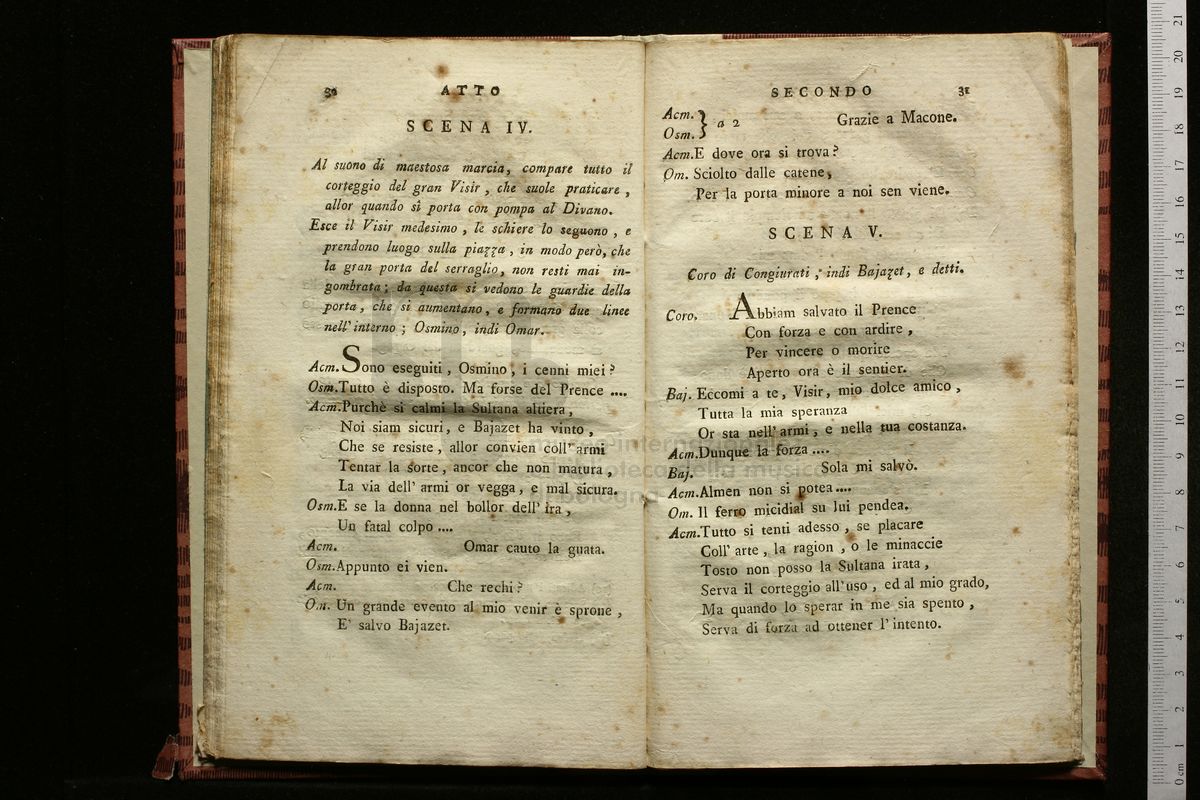 30 ATTO
SCENA IV.
Al suono di maestosa marcia, compare tutto il
corteggio del gran Visir, che suole praticare,
allor quando si porta con pompa al Divano.
Esce il Visir medesimo, le schiere lo seguono, e
prendono luogo sulla piazza, in modo però, che
la gran porta del serraglio, non resti mai in-
gombrata; da questa si vedono le guardie della
porta, che si aumentano, e formano due linee
nell' interno; Osmino, indi Omar.
Acm. Sono eseguiti, Osmino, i cenni miei?
Osm. Tutto è disposto. Ma forse del Prence ....
Acm. Purchè si calmi la Sultana altiera,
Noi siam sicuri, e Bajazet ha vinto,
Che se resiste, allor convien coll' armi
Tentar la sorte, ancor che non matura,
La via dell' armi or vegga, e mal sicura.
Osm. E se la donna nel bollor dell' ira,
Un fatal colpo ....
Acm. Omar cauto la guata.
Osm. Appunto ei vien.
Acm. Che rechi?
Om. Un grande evento al mio venir è sprone,
E' salvo Bajazet.
SECONDO 31
Acm.
Osm. } a 2 Grazie a Macone.
Acm. E dove ora si trova?
Om. Sciolto dalle catene,
Per la porta minore a noi sen viene.
SCENA V.
Coro di Congiurati, indi Bajazet, e detti.
Coro. Abbiam salvato il Prence
Con forza e con ardire,
Per vincere o morire
Aperto ora è il sentier.
Baj. Eccomi a te, Visir, mio dolce amico,
Tutta la mia speranza
Or sta nell' armi, e nella tua costanza.
Acm. Dunque la forza ....
Baj. Sola mi salvò.
Acm. Almen non si potea ....
Om. Il ferro micidial su lui pendea.
Acm. Tutto si tenti adesso, se placare
Coll' arte, la ragion, o le minaccie
Tosto non posso la Sultana irata,
Serva il corteggio all' uso, ed al mio grado,
Ma quando lo sperar in me sia spento,
Serva di forza ad ottener l' intento.
museo internazionale
biblioteca della musica
bologna
0 cm 1 2 3 4 5 6 7 8 9 10 11 12 13 14 15 16 17 18 19 20 21